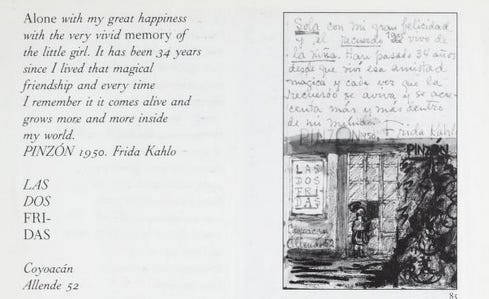 Alone with my great happiness
with the very vivid memory of
the little girl. It has been 34 years
since I lived that magical
friendship and every time
I remember it it comes alive and
grows more and more inside
my world.
PINZÓN 1950. Frida Kahlo
LAS
DOS
FRI-
DAS
Coyoacán
Allende 52
Sola con mi gran felicidad
y el recuerdo vivo de
la niña. Han pasado 34 años
desde que viví esa amistad
mágica y cada vez que la
recuerdo se aviva y se acre-
centa más y más dentro
de mi mundo.
PINZON 1950. Frida Kahlo
PINZÓN
LAS
DOS
FRI-
DAS
Coyoacán
Allende 52
85